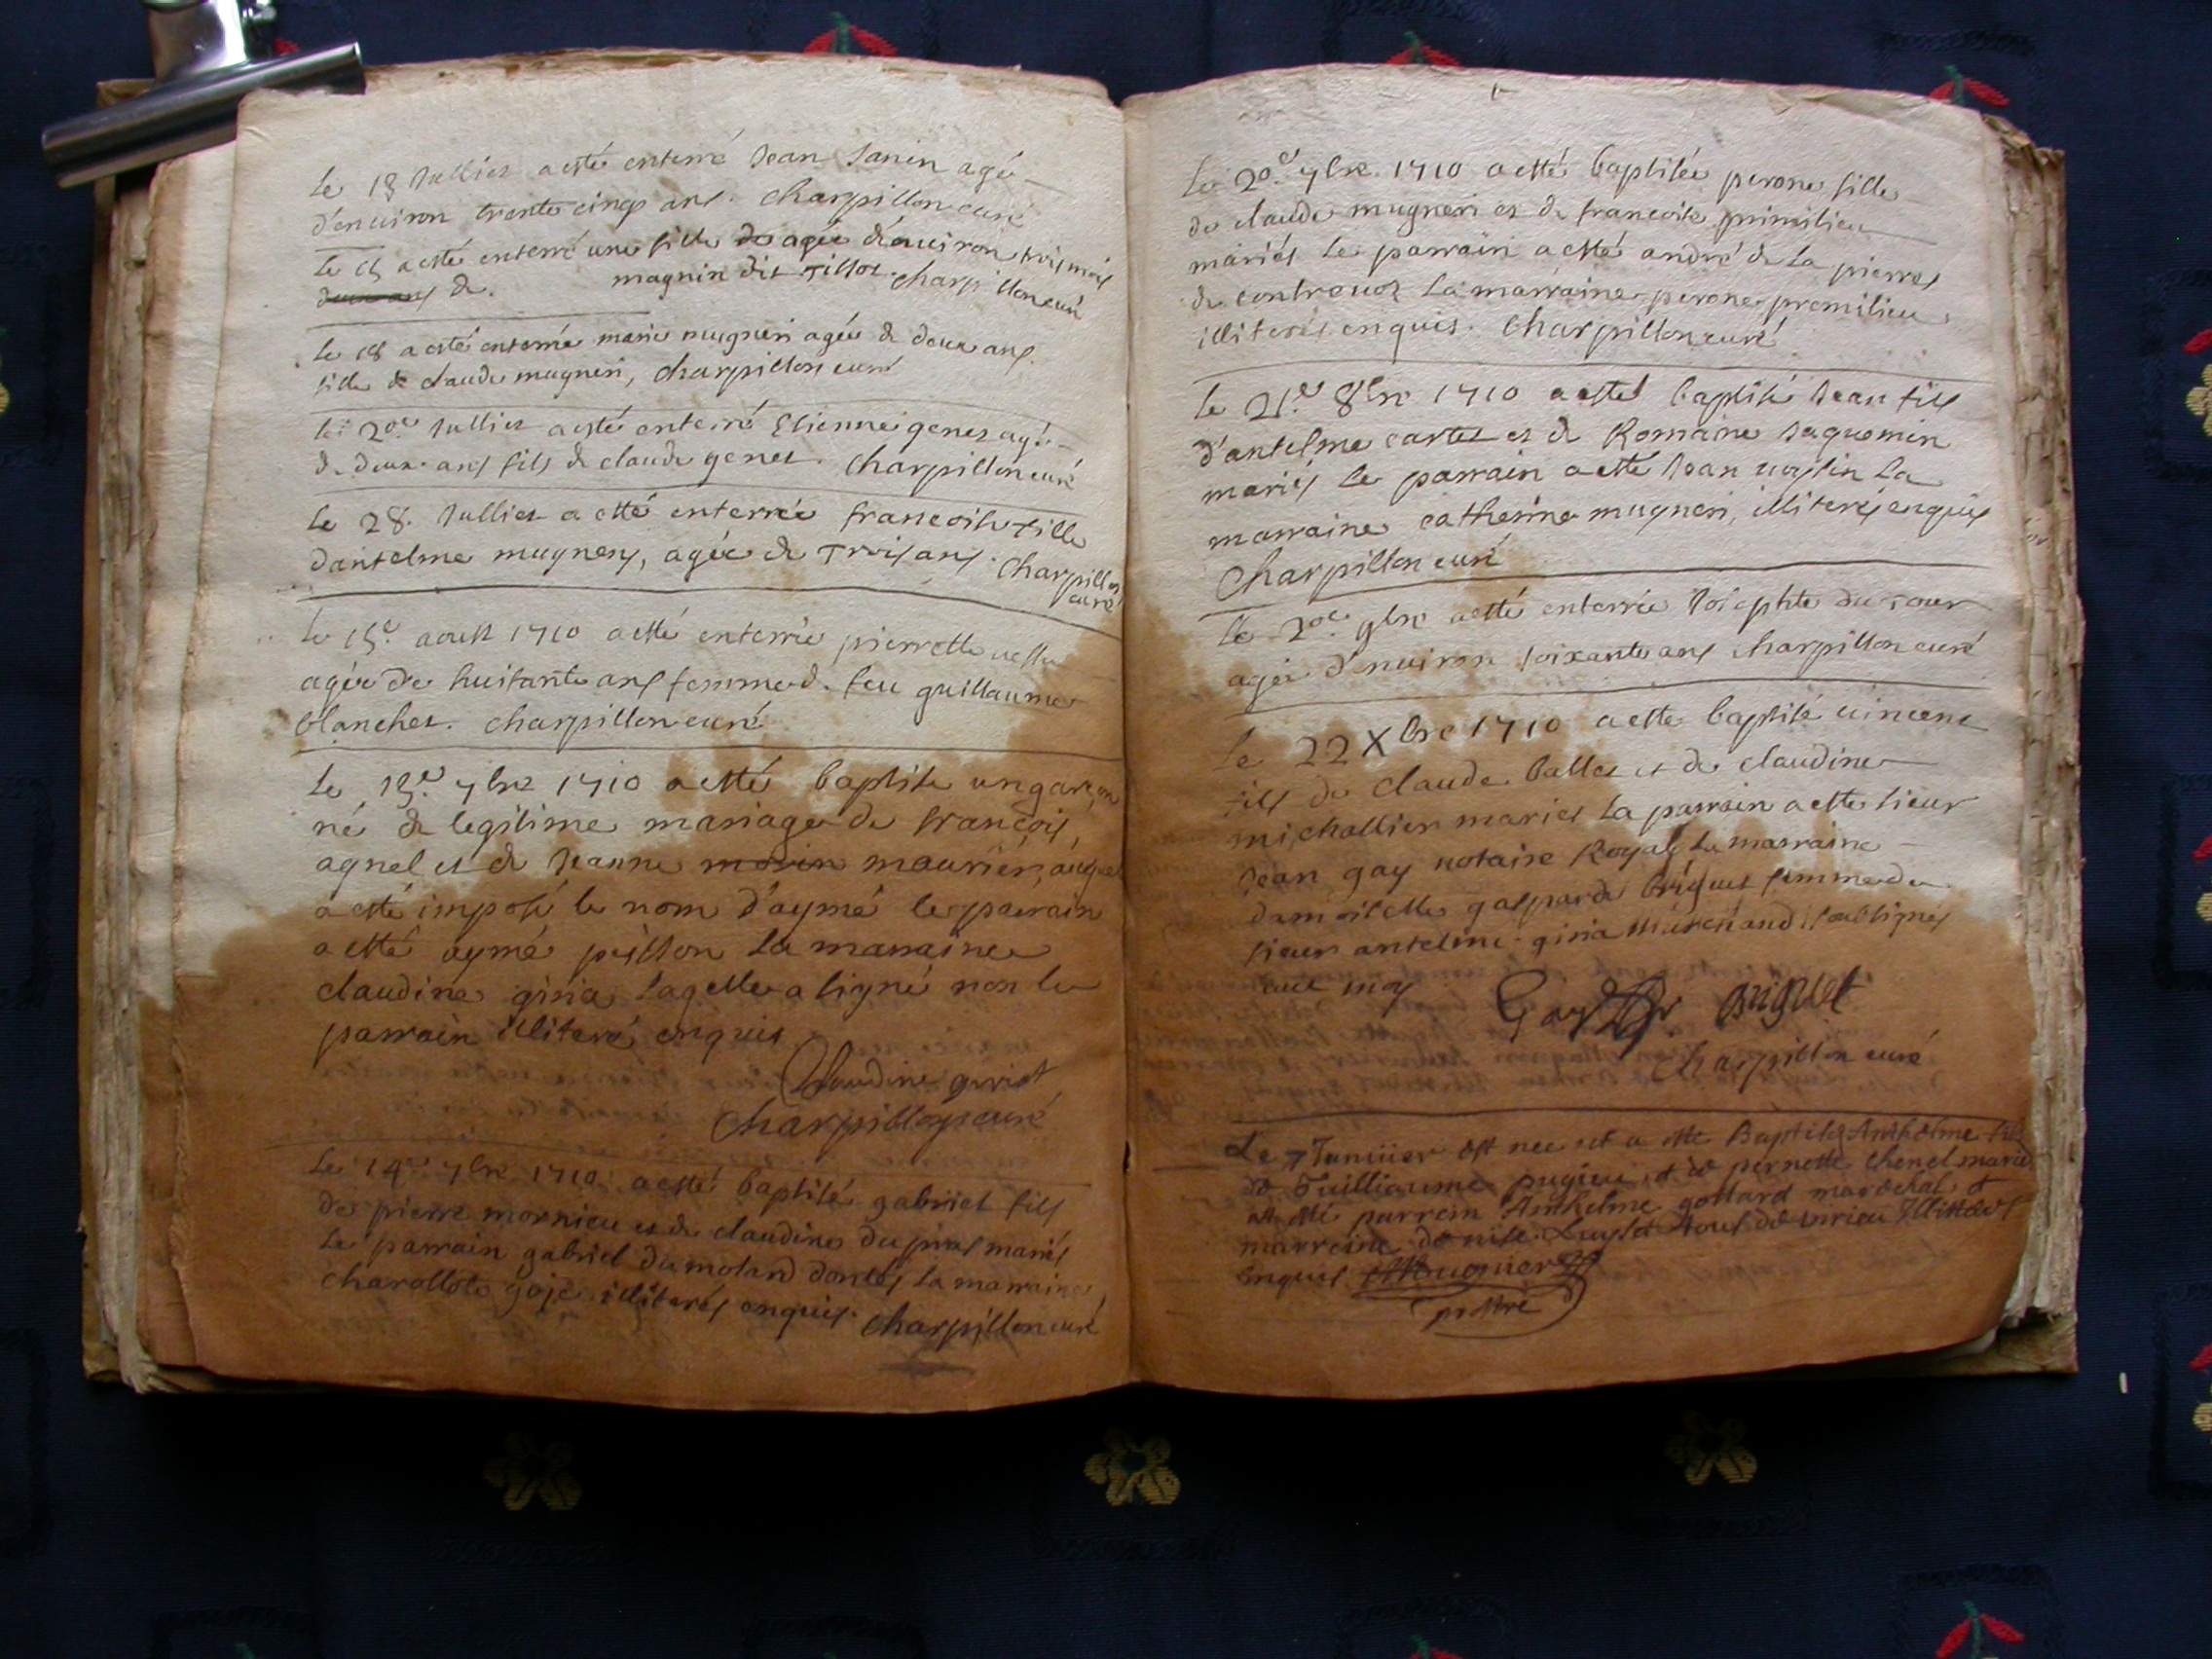 Le 13 Jullies a esté enterré Jean Janin agé
d'enuiron trente cinq ans. Charpillon curé
Le 15 a esté enterré une fille de agée d'enuiron trois mois
deux ans de. magnin dit Tillot. Charpillon curé
Le 18 a esté enterrée marie mugneri agée de deux ans
fille de claude mugneri, Charpillon curé
Le 20e Jullies a esté enterré Etienne genet agé
de deux ans fils de claude genet. Charpillon curé
Le 28. Jullies a esté enterrée francoise fille
dantelme mugnery, agée de Trois ans. Charpillon
curé
Le 15e aoust 1710 a esté enterrée pierrette
agée de huitante ans femme de feu guillaume
blanchet. Charpillon curé
Le 13e 7bre 1710 a esté baptise un garçon
né de legitime mariage de François
agnel et de Jeanne morin maurier, auquel
a esté imposé le nom d'aymé le parrain
a esté aymé peisson La marraine
claudine giria laqelle a signé non le
parrain illiteré enquis
Claudine giriat
Charpillon curé
Le 14e 7bre 1710 a esté baptisé gabriel fils
de pierre mornieu et de claudine du pras mariés
Le parrain gabriel dumolard La marraine
charollote goje illiterés enquis. Charpillon curé
Le 20e 7bre 1710 a esté baptisée perone fille
de claude mugneri et de francoise primilieu
mariés Le parrain a esté andré de la pierre
de contreuoz La marraine perone premilieu
illiterés enquis. Charpillon curé
Le 21e 8bre 1710 a esté baptisé Jean fils
d'antelme cartet et de Romaine Jaquemin
mariés Le parrain a esté Jean La
marraine catherine mugneri, illiterés enquis
Charpillon curé
Le 20e 9bre a esté enterrée Josephte du Tour
agée d'enuiron soixante ans Charpillon curé
Le 22 Xbre 1710 a esté baptisé uincent
fils de claude ballet et de claudine
michallier mariés La parrain a esté sieur
Jean gay notaire Royal La marraine
damoiselle gasparde briguet femme du
sieur antelme giria Marchand soubsignés
auec moy
Gay Briguet
Charpillon curé
Le 7 Januiier est nee et a esté Baptisé Anthelme fils
de Guilliaume pugieu et de pernette Chenel mariés
a esté parrein Anthelme gottard marechal et
marreine de nise tous de virieu Illiterés
enquis Mugnier
prestre